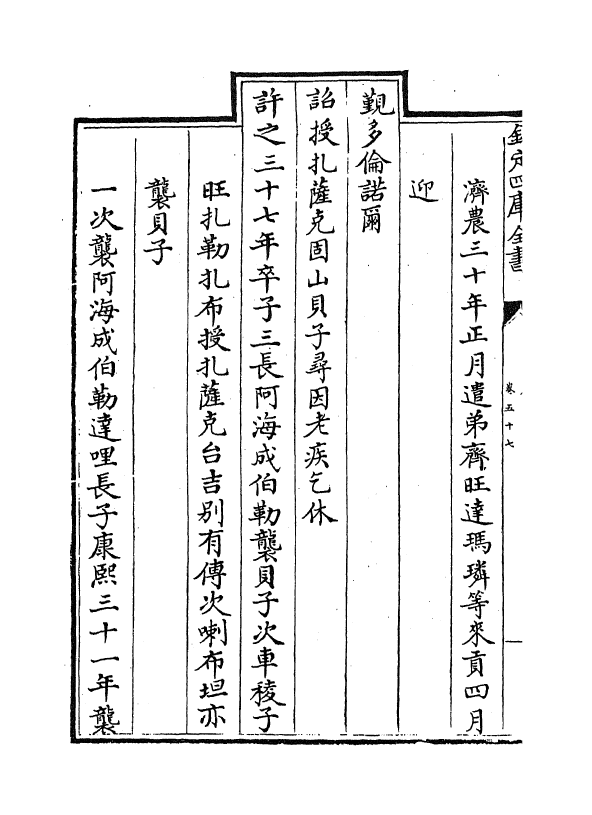 欽定四庫全書
卷五十七
濟農三十年正月遣弟齊旺達瑪璘等來貢四月
迎
覲多倫諾爾
詔授扎薩克固山貝子尋因老疾乞休
許之三十七年卒子三長阿海成伯勒襲貝子次車稜子
旺扎勒扎布授扎薩克台吉别有傳次喇布坦亦
襲貝子
一次襲阿海成伯勒達哩長子康熙三十一年襲